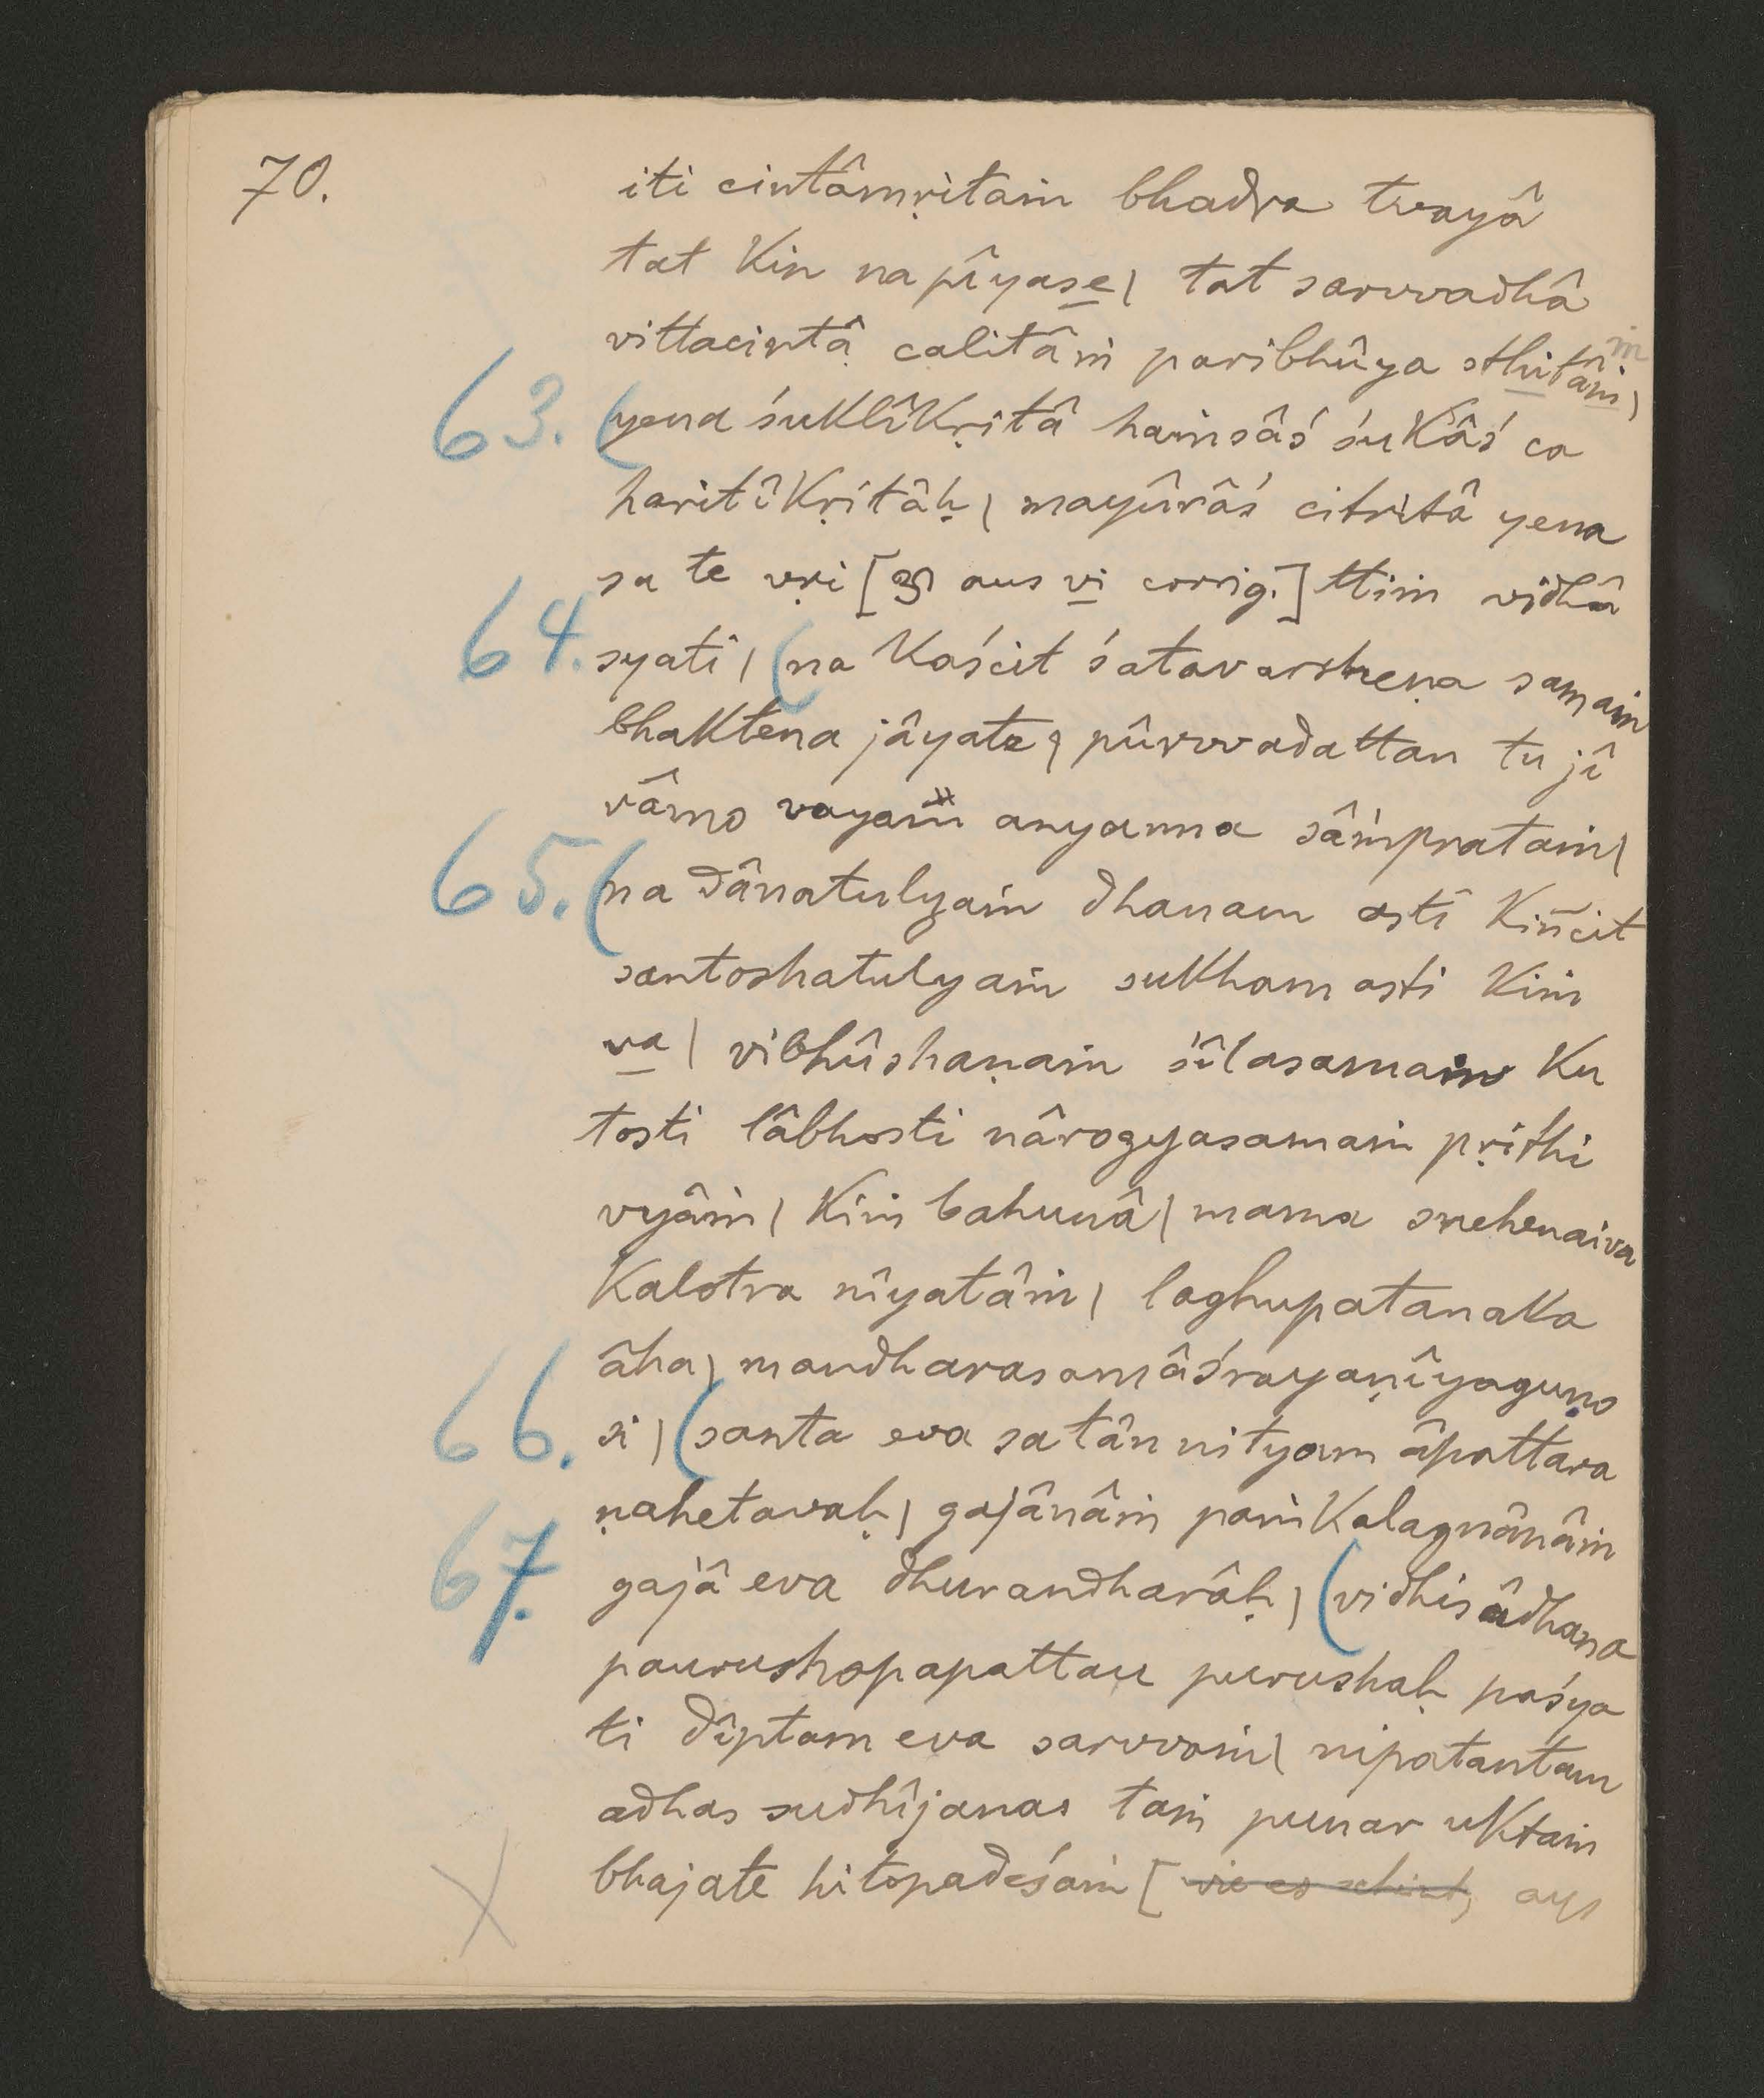 70.
iti cintâmṛitaṁ bhadra tvayâ
tat kin na pîyase | tat sarvvadhâ
vittacintâ calitâṁ paribhûya sthitâṁ |
63. (yena śuklîkṛitâ haṁsâś śukâś ca
haritîkṛitâḥ | mayûrâś citritâ yena
sa te vṛi [ aus vi corrig.] ttiṁ vidhâ
64. syati | (na kaścit śatavarsheṇa samaṁ
bhaktena jâyate | pûrvvadattan tu jî
vâmo vayaṁ anyanna sâṁprataṁ |
65. (na dânatulyaṁ dhanam asti kiñcit
santoshatulyaṁ sukham asti kiṁ
va | vibhûshaṇaṁ śîlasamaṁ ku
tosti lâbhosti nârogyasamaṁ pṛithi
vyâṁ | kiṁ bahunâ | mama snehenaiva
kalotra nîyatâṁ | laghupatanaka
âha | mandharasamâśrayaṇîyaguṇo
66. si | (santa eva satân nityam âpattara
ṇahetavaḥ | gajânâṁ paṁkalagnânâṁ
67. gajâ eva dhurandharâḥ | (vidhisâdhana
paurushopapattau purushaḥ paśya
ti dîptam eva sarvvaṁ | nipatantam
adhas sudhîjanas taṁ punar uktaṁ
bhajate hitopadeśaṁ [wie es scheint, aus